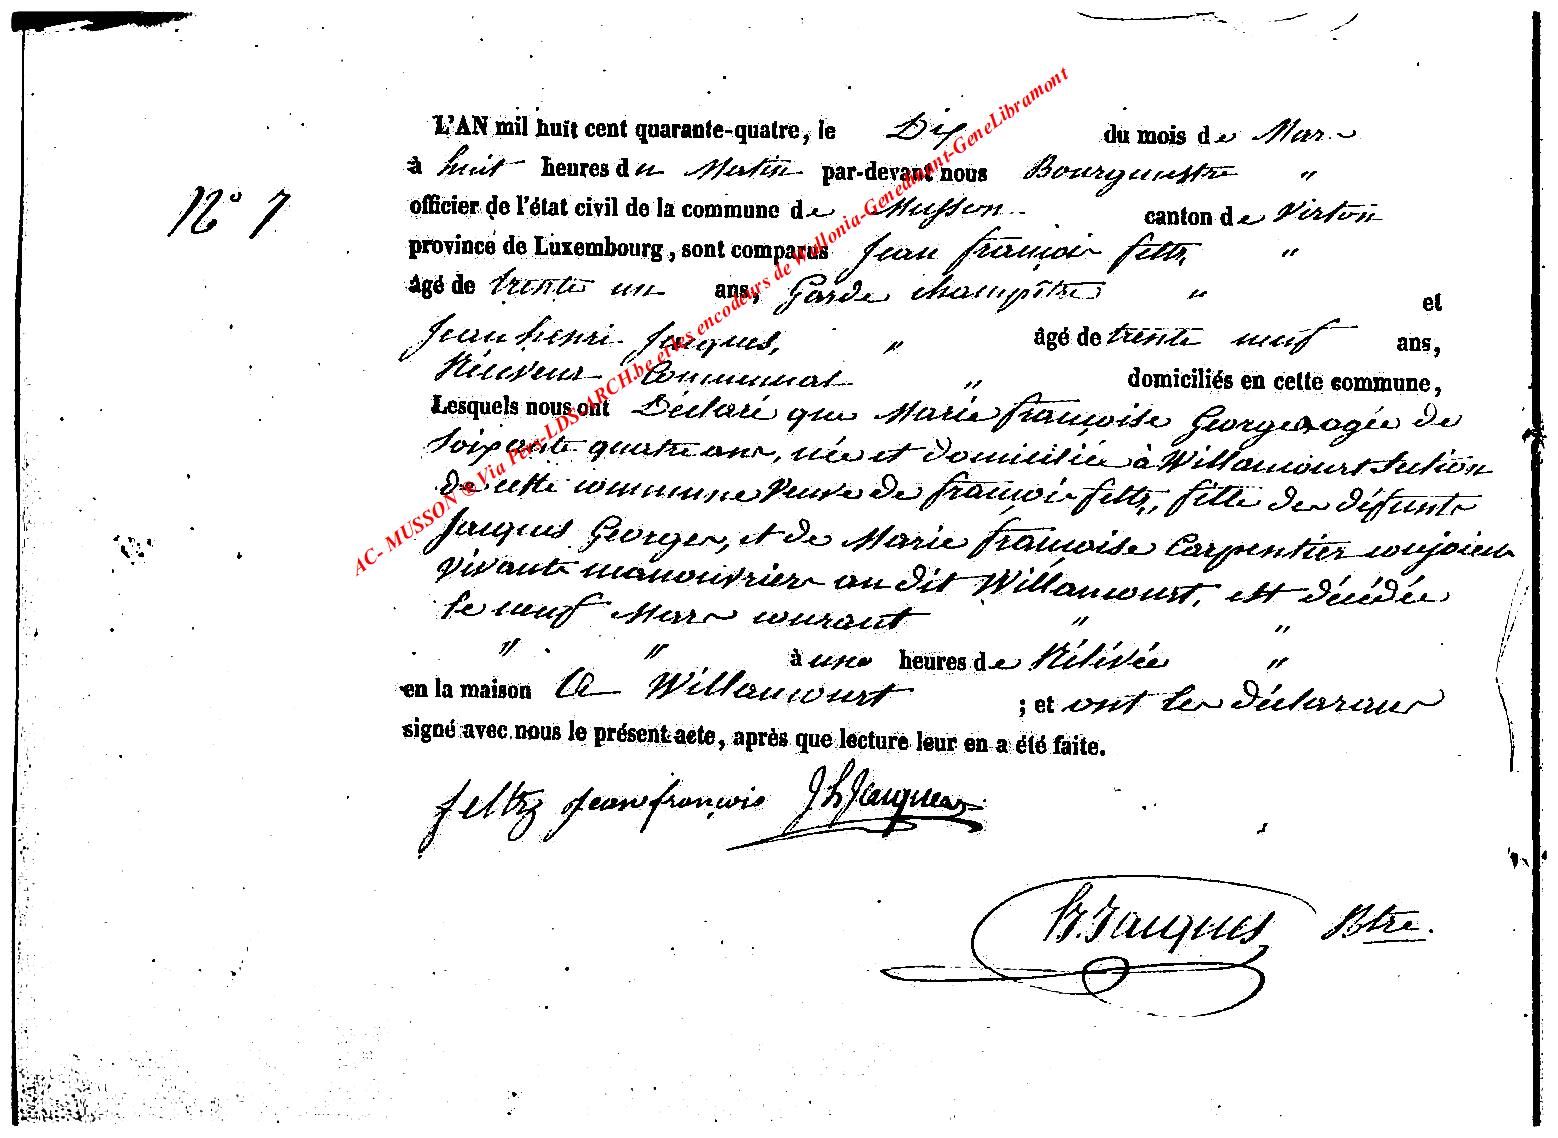 L'AN mil huit cent quarante-quatre, le Dix du mois de Mars
à huit heures du Matin par-devant nous Bourguestre "
N° 7
officier de l'état civil de la commune de Musson canton de Virton
province de Luxembourg, sont comparus Jean françois feltz, "
âgé de trente un ans, Garde champêtre " et
Jean henri Jacques, " âgé de trente neuf ans,
Réceveur Communal " domiciliés en cette commune,
Lesquels nous ont Déclaré que Marie françoise Georges agée de
soixante quatre ans, née et domiciliée à Willancourt section
de cette commune veuve de françois feltz, fille des défunts
Jacques Georges, et de Marie françoise Carpentier conjoints
vivants manouvriers au dit Willancourt, est décédée
le neuf Mars courant " "
" " à une heures de Rélévée "
en la maison a Willancourt ; et ont les déclarans
signé avec nous le présent acte, après que lecture leur en a été faite.
feltz Jean françois J h Jacques
H. Jacques Btre.
AC- MUSSON ® Via Pers-LDS-ARCH.be et les encodeurs de Wallonia-Genedinant-GeneLibramont